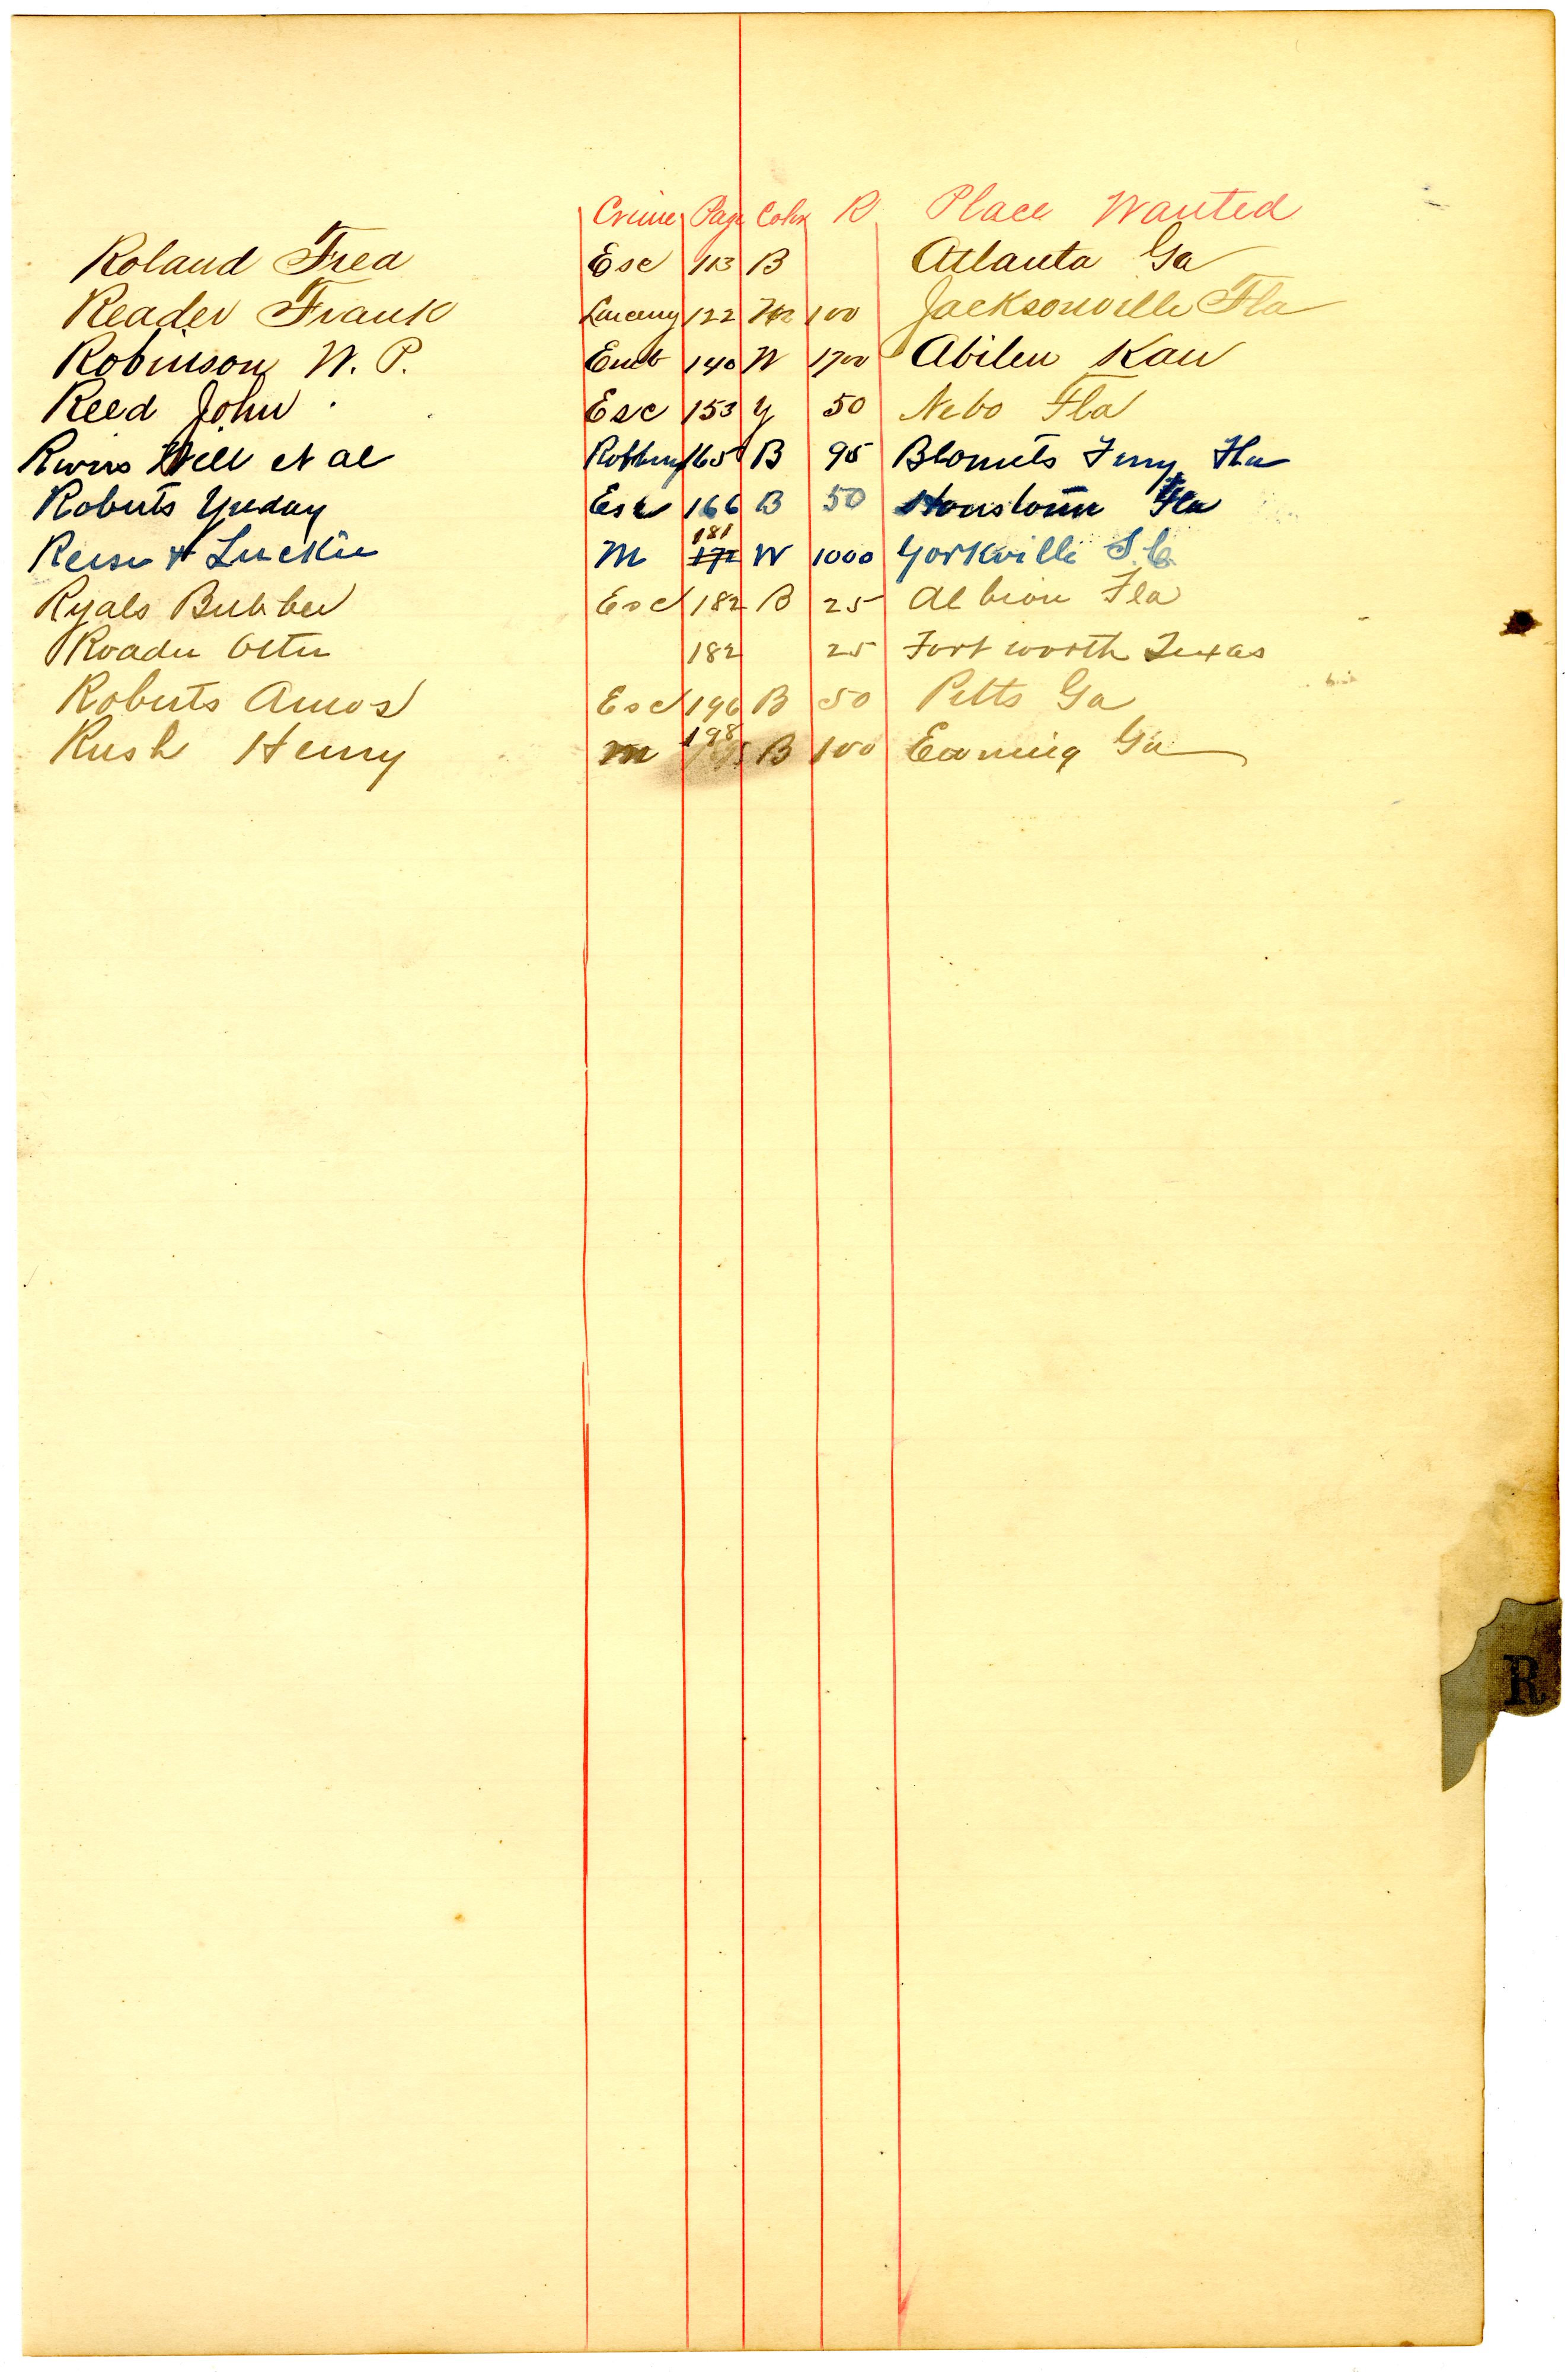 Crime Page Color R Place Wanted
Roland Fred Esc 113 B Atlanta Ga
Reader Frank Larceny 122 100 Jacksonville Fla
Robinson W. P. Emb 140 W 1700 Abilen Kan
Reed John Esc 153 Y 50 Nebo Fla
Will et al Robbery 165 B 95 Ferry Fla
Roberts Esc 166 B 50 Fla
& Luckie M 181 W 1000 Yorkville S.C.
Ryals Bubber Esc 182 B 25 Albion Fla
182 25 Fort worth Texas
Roberts Amos Esc 196 B 50 Pitts Ga
Rush Henry M 198 B 100 Ga
R